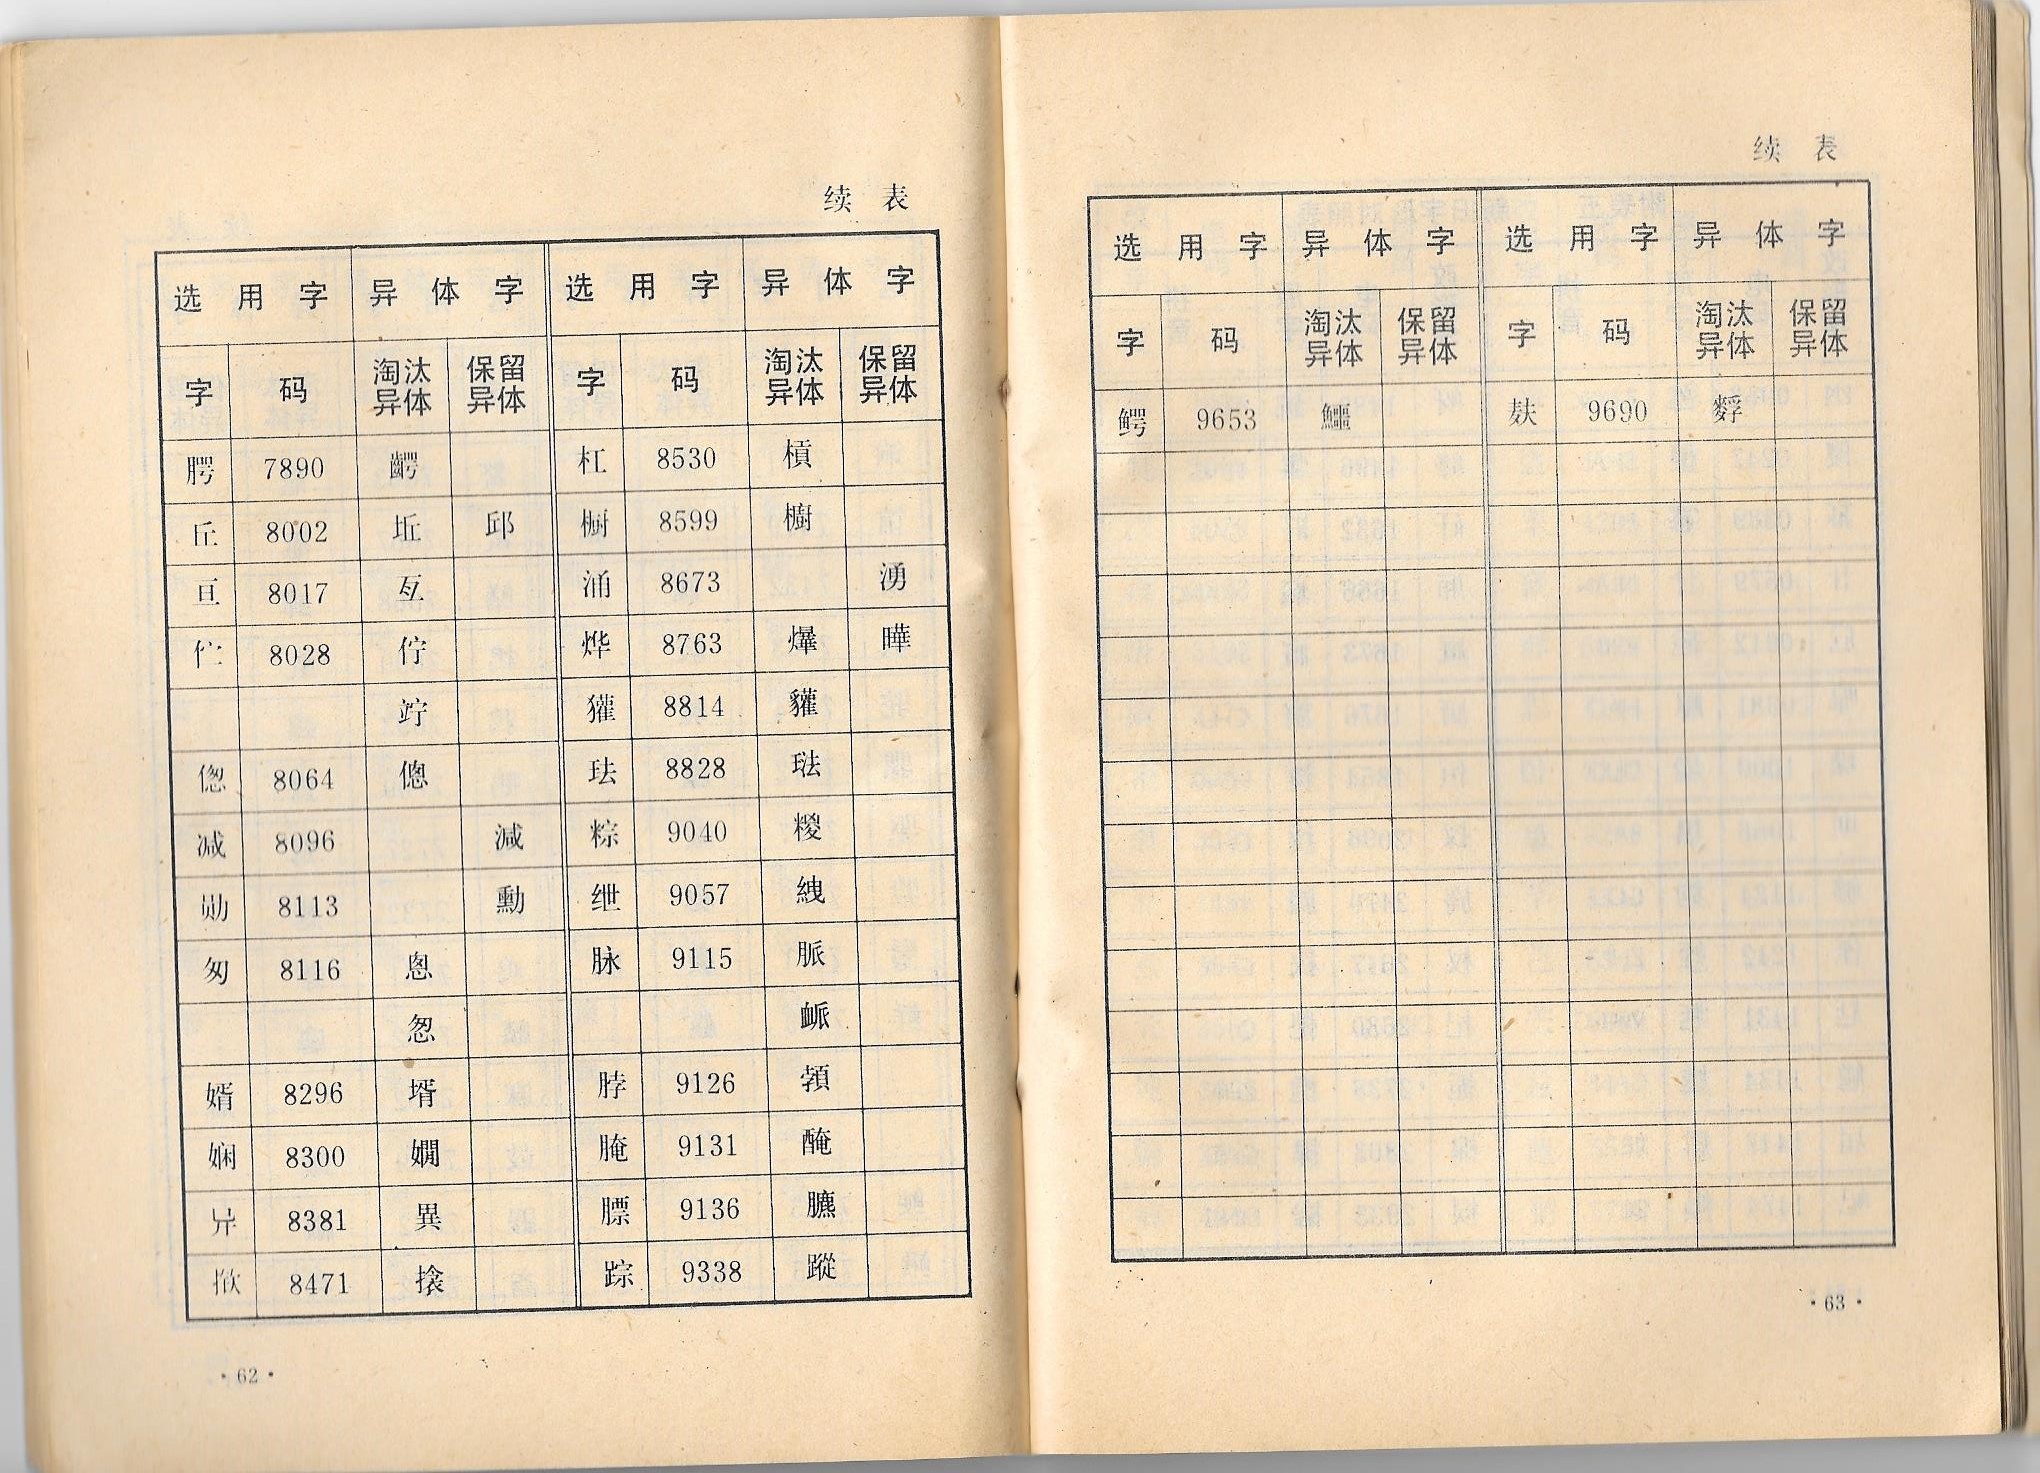 续 表
选 用 字 异 体 字 选 用 字 异 体 字
字 码 淘汰异体 保留异体 字 码 淘汰异体 保留异体
腭 7890 齶 杠 8530 槓
丘 8002 坵 邱 橱 8599 櫥
亘 8017 亙 涌 8673 湧
伫 8028 佇 烨 8763 爗 曄
竚 獾 8814 貛
偬 8064 傯 珐 8828 琺
减 8096 減 粽 9040 糉
勋 8113 勳 绁 9057 絏
匆 8116 悤 脉 9115 脈
怱 衇
婿 8296 壻 脖 9126 頟
娴 8300 嫺 腌 9131 醃
异 8381 異 膘 9136 臕
揿 8471 搇 踪 9338 蹤
· 62 ·
续 表
选 用 字 异 体 字 选 用 字 异 体 字
字 码 淘汰异体 保留异体 字 码 淘汰异体 保留异体
鳄 9653 鱷 麸 9690 麫
· 63 ·